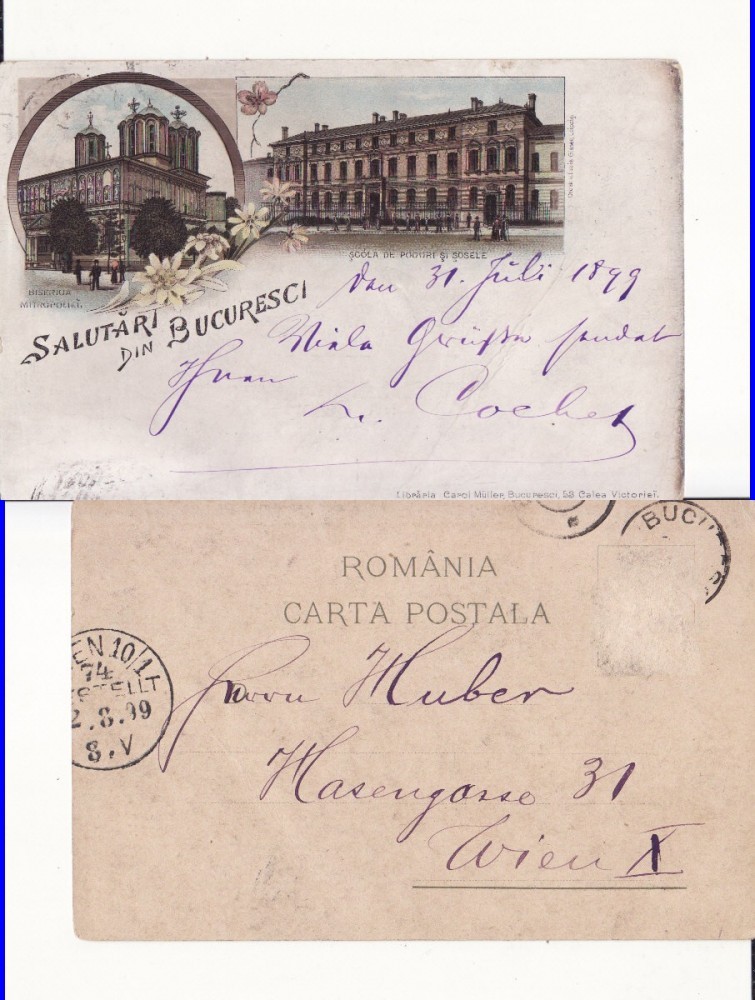 BISERICA
MITROPOLIEI.
ȘCÓLA DE PODURI ȘI ȘOSELE
SALUTĂRI
DIN BUCURESCI
den 31. Juli 1899
Viele Grüße sendet
Ihnen
Librăria Carol Müller, Bucuresci, 53 Calea Victoriei.
BUCU
ROMÂNIA
CARTA POSTALA
10/1
74
STELLT
2.8.99
8.V
Herrn Huber
Hasengasse 31
Wien X